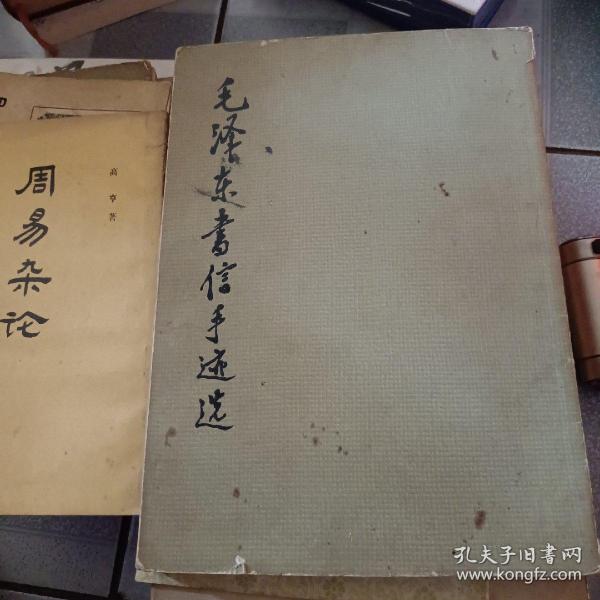 毛泽东书信手迹选
高亨著
周易杂论
孔夫子旧书网
www.kongfz.com